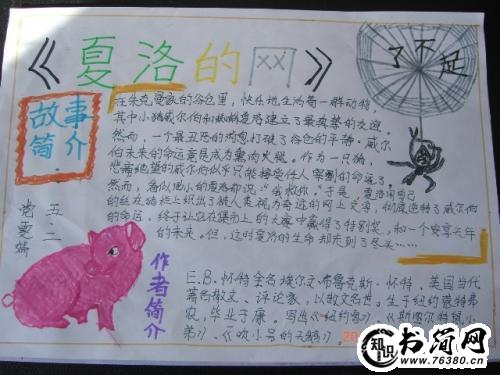 《夏洛的网》
了不起
故事简介
在朱克曼家的谷仓里，快乐地生活着一群动物，
其中小猪威尔伯和蜘蛛夏洛建立了最真挚的友谊。
然而，一个最丑恶的消息打破了谷仓的平静：威尔
伯未来的命运竟是成为熏肉火腿。作为一只猪，
悲痛绝望的威尔伯似乎只能接受任人宰割的命运了，
然而，看似渺小的夏洛却说："我救你。"于是，夏洛用自己
的丝在猪栏上织出了被人类视为奇迹的网上文字，彻底逆转了威尔伯
的命运，终于让它在集市上的大赛中赢得了特别奖，和一个安享天年
的未来。但，这时夏洛的生命却走到了尽头……
五·二
作者简介
E.B.怀特全名埃尔文·布鲁克斯·怀特，美国当代
著名散文、评论家，以散文名世，生于纽约蒙特弗
农，毕业于康 写出《纽约客》、《斯图尔特鼠小
弟》、《吹小号的天鹅》。
知识
书简网
www.76380.cn